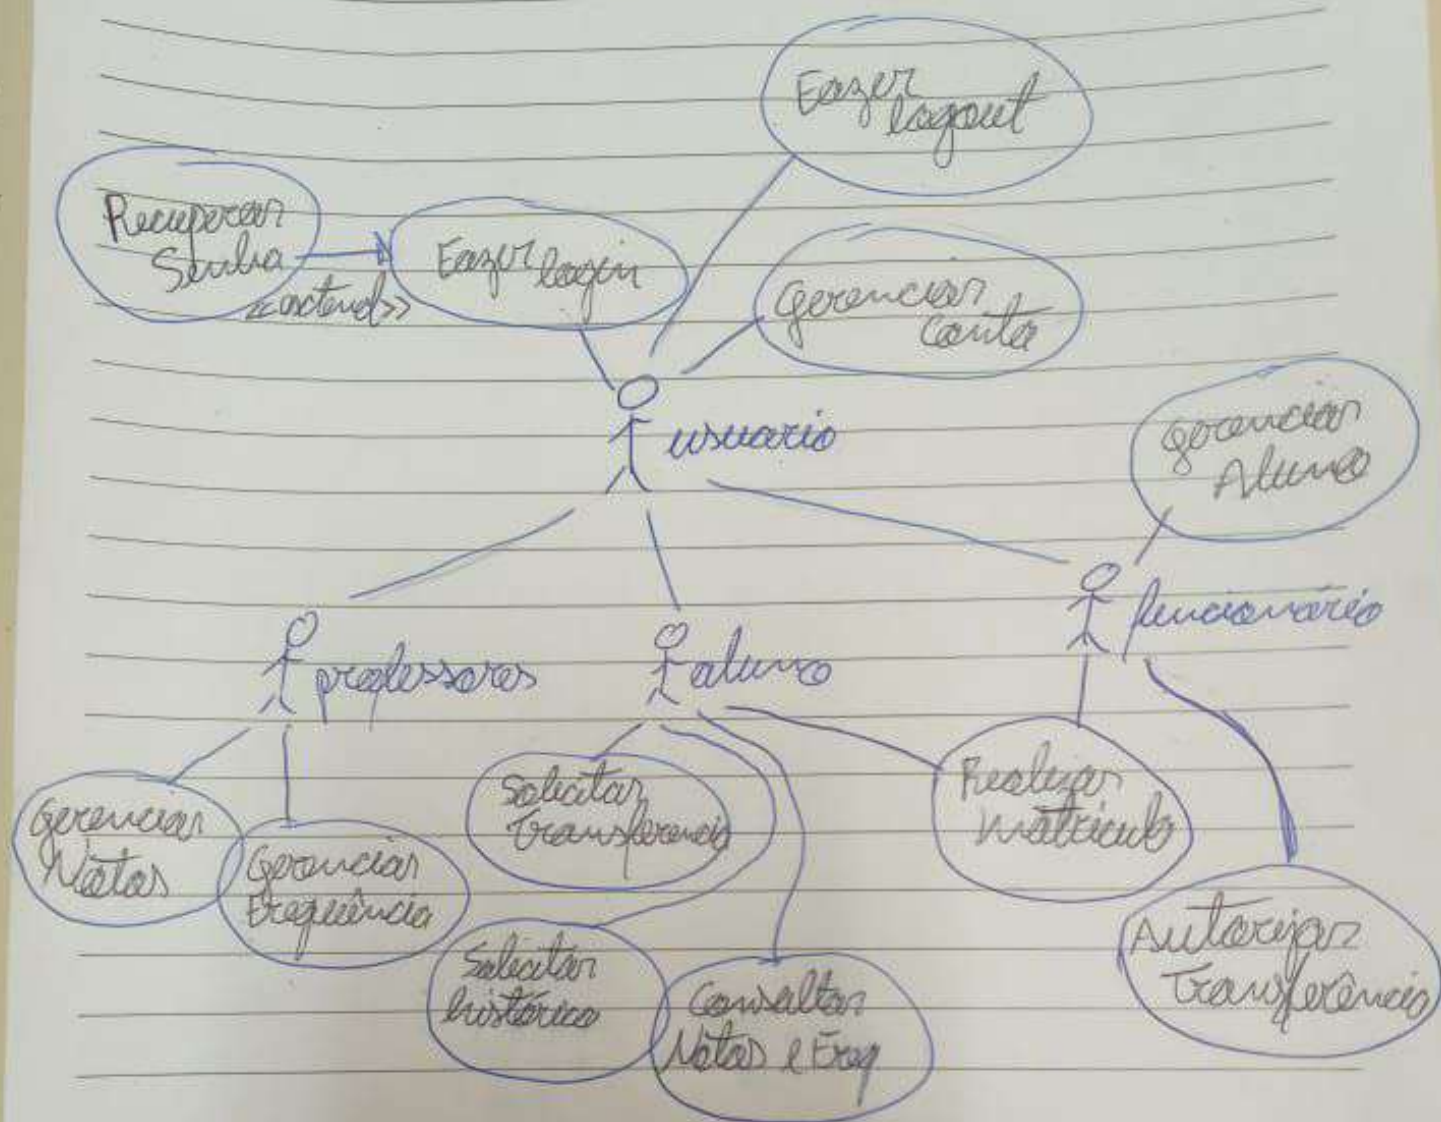 Fazer
logout
Recuperar
Senha
<<extend>>
Fazer login
Gerenciar
Conta
usuario
Gerenciar
Aluno
funcionário
professores
aluno
Gerenciar
Notas
Gerenciar
Frequência
Solicitar
Transferencia
Realizar
matricula
Solicitar
histórico
Consultar
Notas e Freq
Autorizar
Transferência